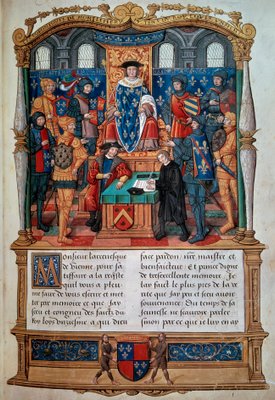 Monsieur larcevesque
de vienne pour sa
tisffaire a la reqste
quil vous a pleu
me faire de vous escrire et mettre
par memoire ce que Jay
sceu et congneu des faictz du
Roy loys unziesme a qui dieu
face pardon nre maistre et
bienfaicteur Et prince digne
de tresexcellente memoire Je
lay faict le plus pres de la ve
rite que Jay peu et sceu avoir
souvenance Du temps de sa
Jeunesse ne scauroye parler
sinon par ce que ie luy en ay